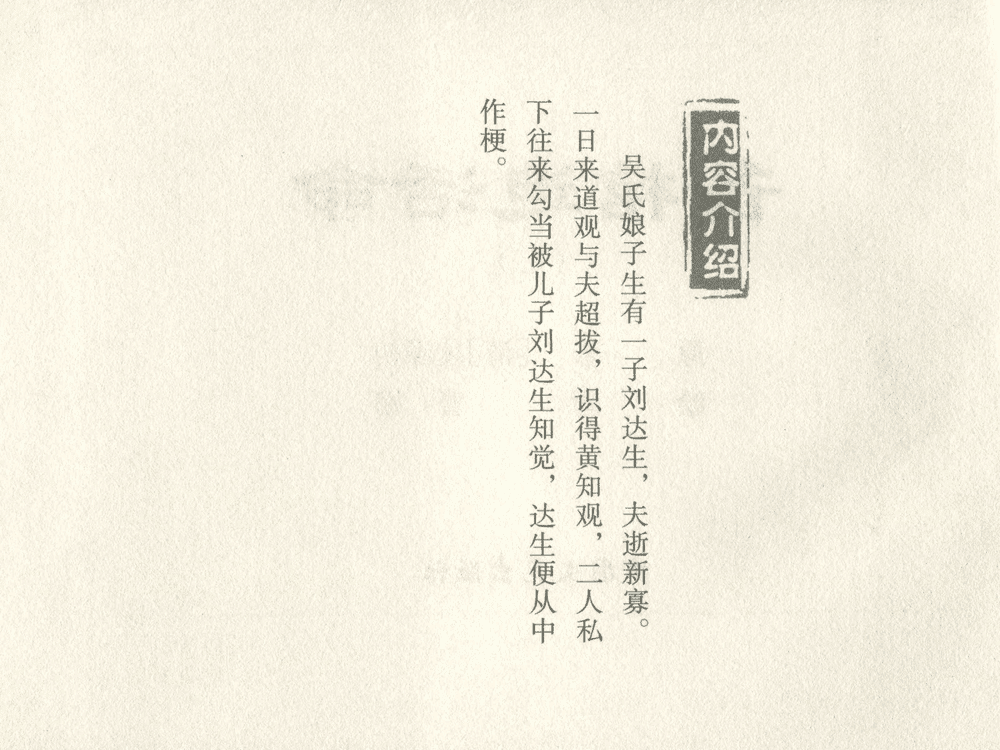 内容介绍
吴氏娘子生有一子刘达生，夫逝新寡。
一日来道观与夫超拔，识得黄知观，二人私
下往来勾当被儿子刘达生知觉，达生便从中
作梗。